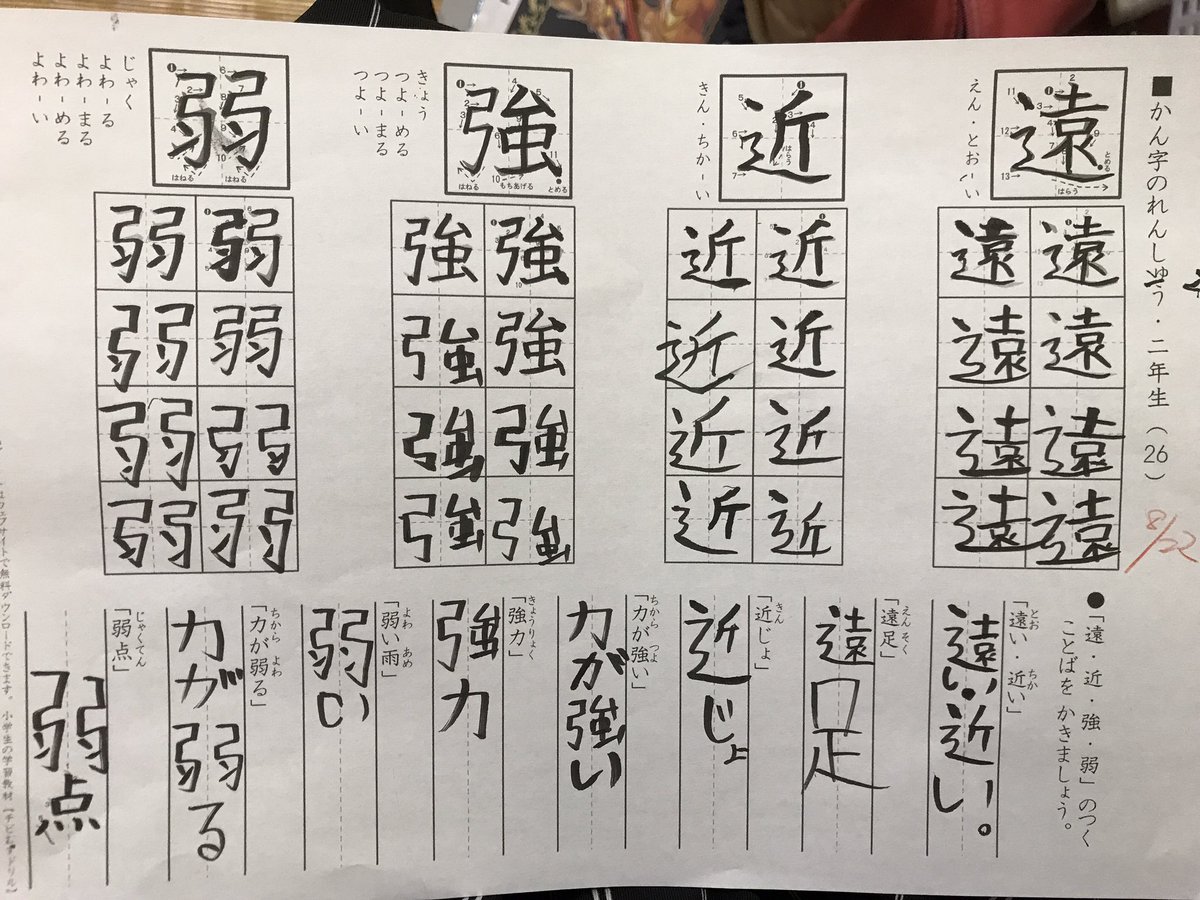 ■かん字のれんしゅう・二年生（26）
8/22
遠
えん・とお－い
遠遠遠遠
遠遠遠遠
近
きん・ちか－い
近近近近
近近近近
強
きょう
つよ－める
つよ－まる
つよ－い
強強強強
強強強強
弱
じゃく
よわ－る
よわ－まる
よわ－める
よわ－い
弱弱弱弱
弱弱弱弱
●「遠・近・強・弱」のつく
ことばを かきましょう。
「遠い・近い」
とお ちか
遠い、近い。
「遠足」
えんそく
遠足
「近じょ」
きん
近じょ
「力が強い」
ちから つよ
力が強い
「強力」
きょうりょく
強力
「弱い雨」
よわ あめ
弱い
「力が弱る」
ちから よわ
力が弱る
「弱点」
じゃくてん
弱点
ウェブサイトで無料ダウンロードできます。 小学生の学習教材【ちびむすドリル】